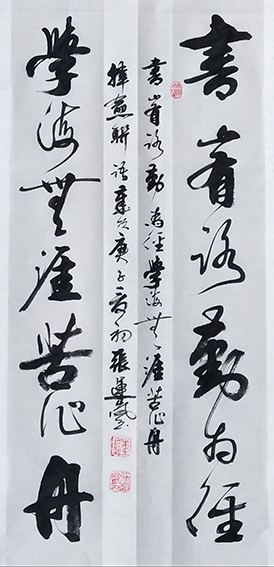 書山有路勤為徑
書山有路勤為徑學海無涯苦作舟
聯語 庚子 初張
學海無涯苦作舟